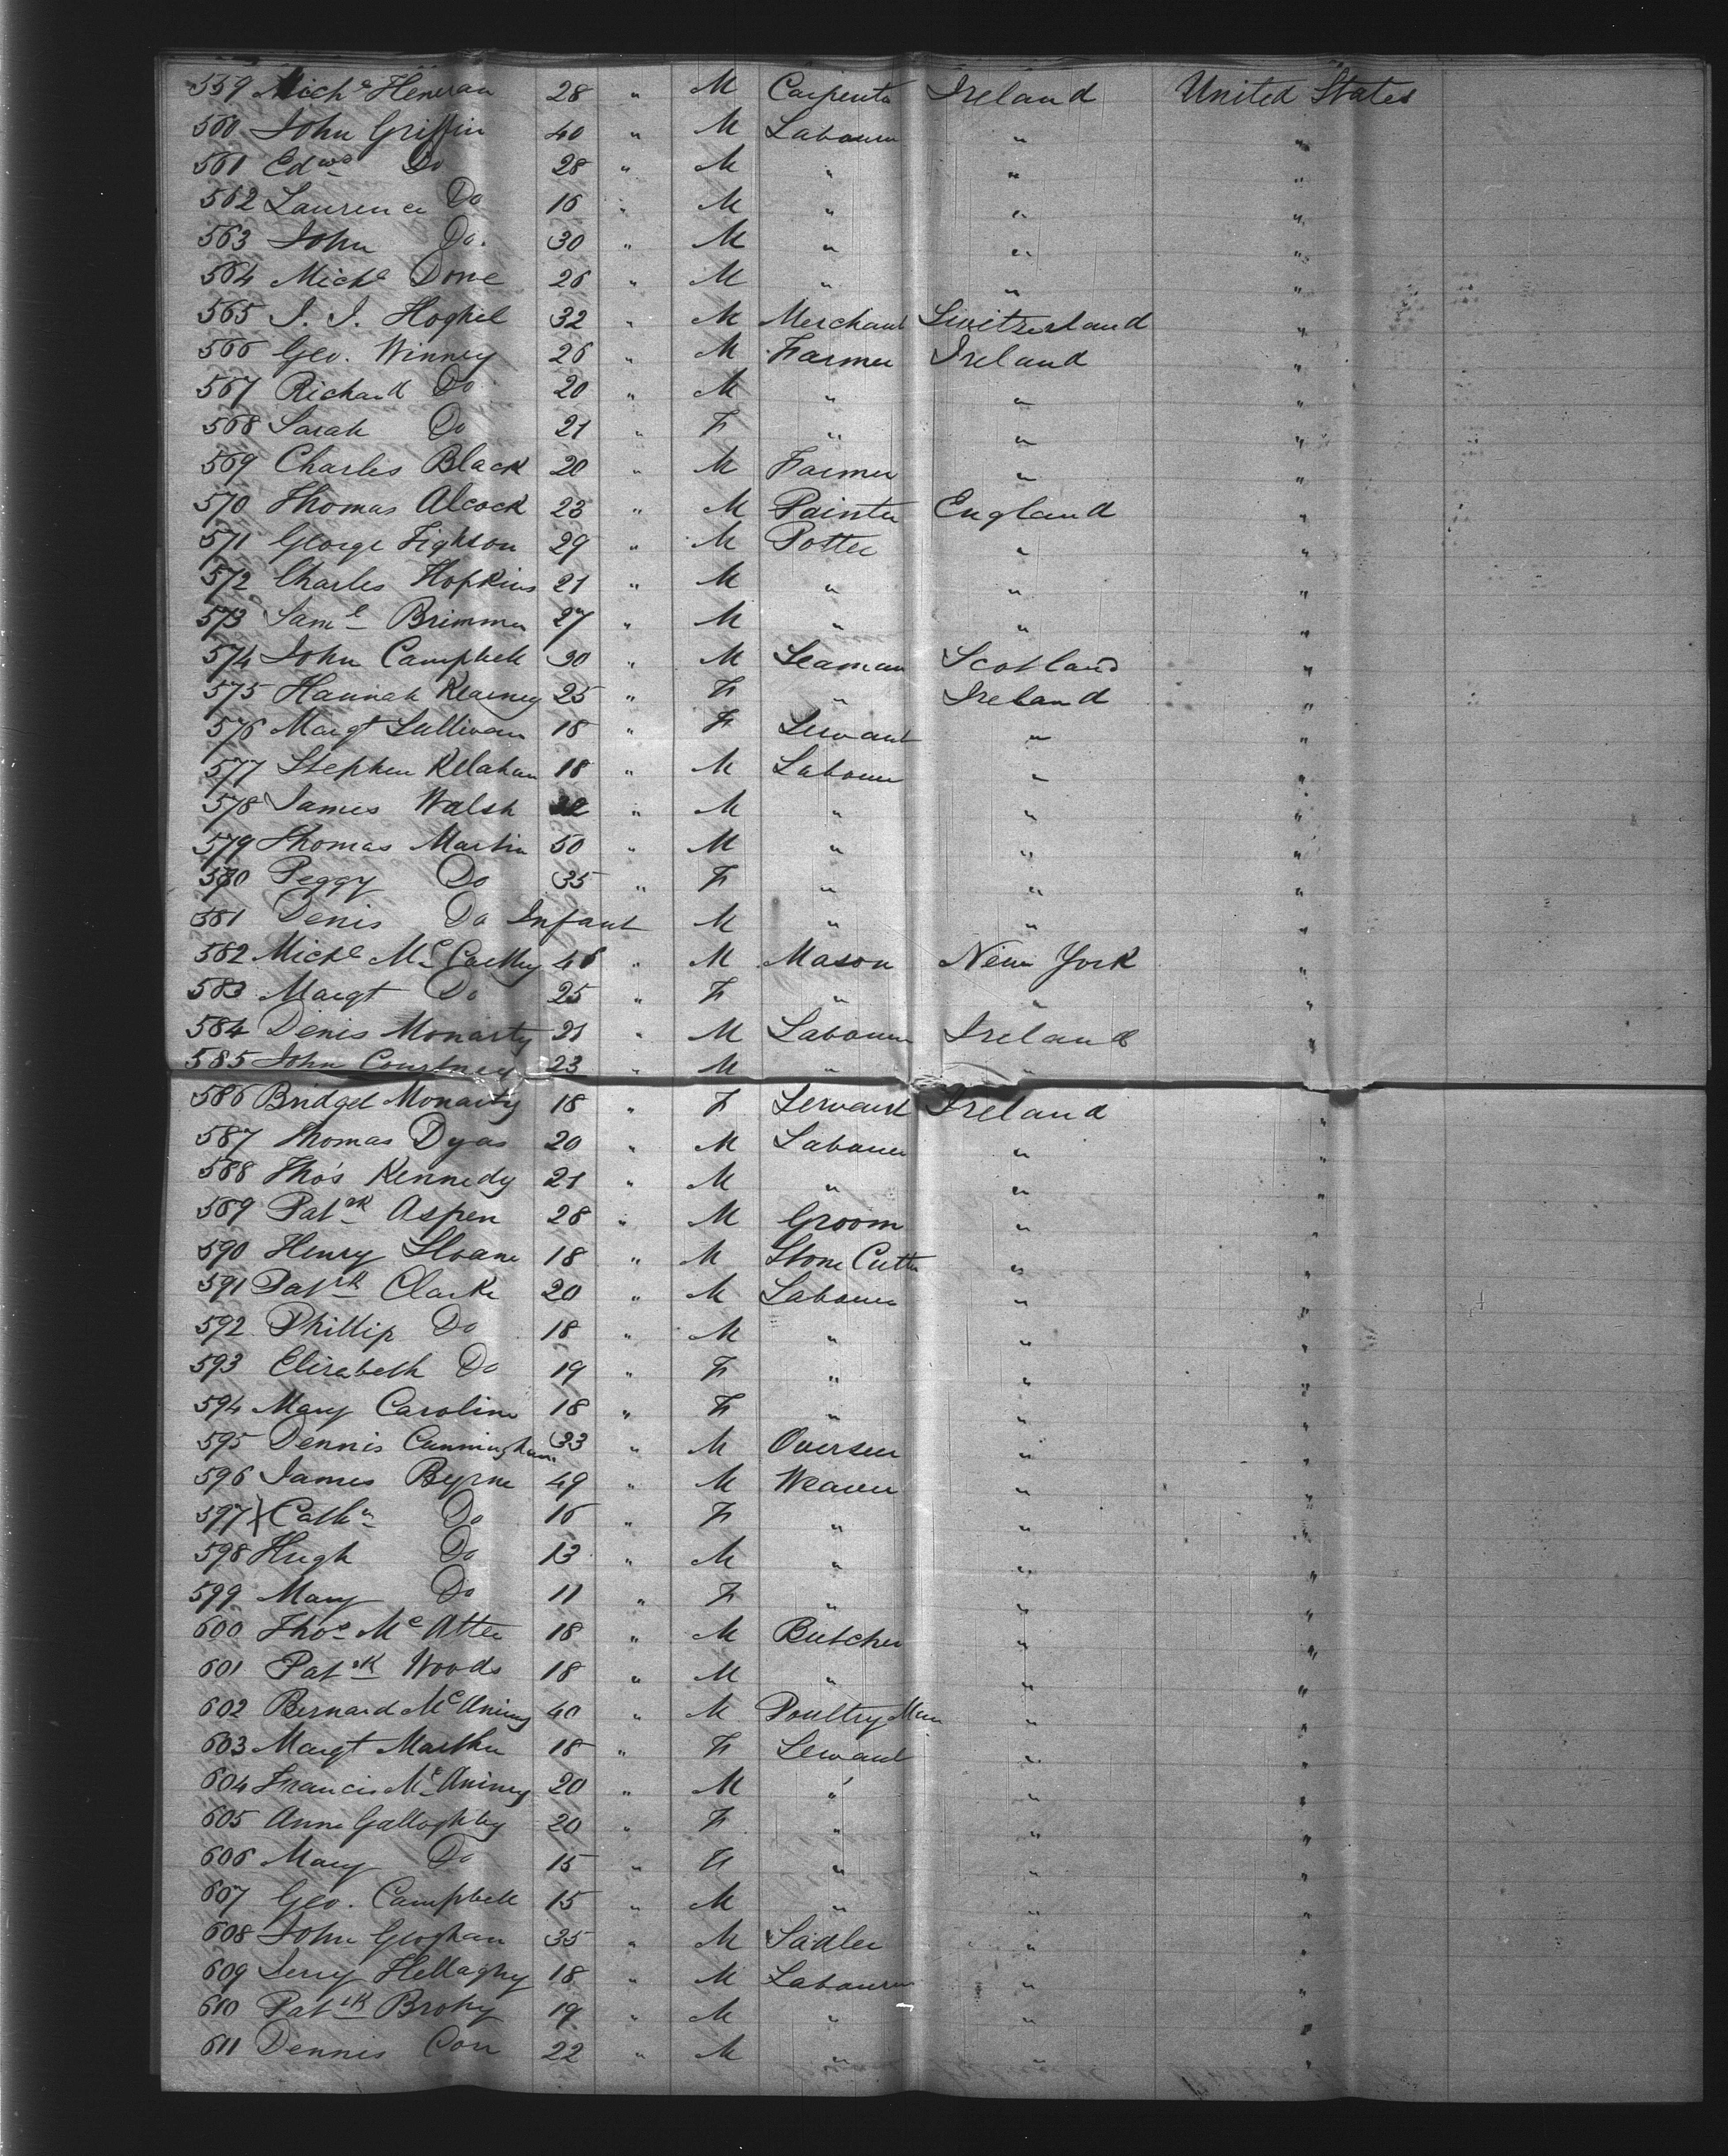 559 Michl Heneran 28 " M Carpenter Ireland United States
560 John Griffin 40 " M Labourer " "
561 Edwd Do 28 " M " " "
562 Laurence Do 16 " M " " "
563 John Do. 30 " M " " "
564 Michl Done 26 " M " " "
565 J. J. Hoghel 32 " M Merchant Switzerland "
566 Geo. Winney 26 " M Farmer Ireland "
567 Richard Do 20 " M " " "
568 Sarah Do 21 " F " " "
569 Charles Black 20 " M Farmer " "
570 Thomas Alcock 23 " M Painter England "
571 George Fighson 29 " M Potter " "
572 Charles Hopkins 21 " M " " "
573 Saml Brimmer 27 " M " " "
574 John Campbell 30 " M Seaman Scotland "
575 Hannah Kearney 25 " F " Ireland "
576 Margt Sullivan 18 " F Servant " "
577 Stephen Kelahan 18 " M Labourer " "
578 James Walsh " M " " "
579 Thomas Martin 50 " M " " "
580 Peggy Do 35 " F " " "
581 Denis Do Infant M " " "
582 Michl McCarthy 46 " M Mason New York "
583 Margt Do 25 " F " " "
584 Denis Monarty 21 " M Labourer Ireland "
585 John Courtney 23 " M " "
586 Bridget Monarty 18 " F Servant Ireland "
587 Thomas Dyas 20 " M Labourer " "
588 Thos Kennedy 21 " M " " "
589 Patrk Aspen 28 " M Groom " "
590 Henry Sloane 18 " M Stone Cutter " "
591 Patrk Clarke 20 " M Labourer " "
592 Phillip Do 18 " M " " "
593 Elizabeth Do 19 " F " " "
594 Mary Caroline 18 " F " " "
595 Dennis Cunningham 33 " M Overseer " "
596 James Byrne 49 " M Weaver " "
597 X Cathn Do 16 " F " " "
598 Hugh Do 13 " M " " "
599 Mary Do 11 " F " " "
600 Thos McAtter 18 " M Butcher " "
601 Patrk Woods 18 " M " " "
602 Bernard McAniney 40 " M Poultry Man " "
603 Margt Marther 18 " F Servant " "
604 Francis McAniney 20 " M " " "
605 Anne Galloghley 20 " F " " "
606 Mary Do 15 " F " " "
607 Geo. Campbell 15 " M " " "
608 John Geoghan 35 " M Sadler " "
609 Jerry Hellaghy 18 " M Labourer " "
610 Patrk Brohy 19 " M " " "
611 Dennis Corr 22 " M " " "